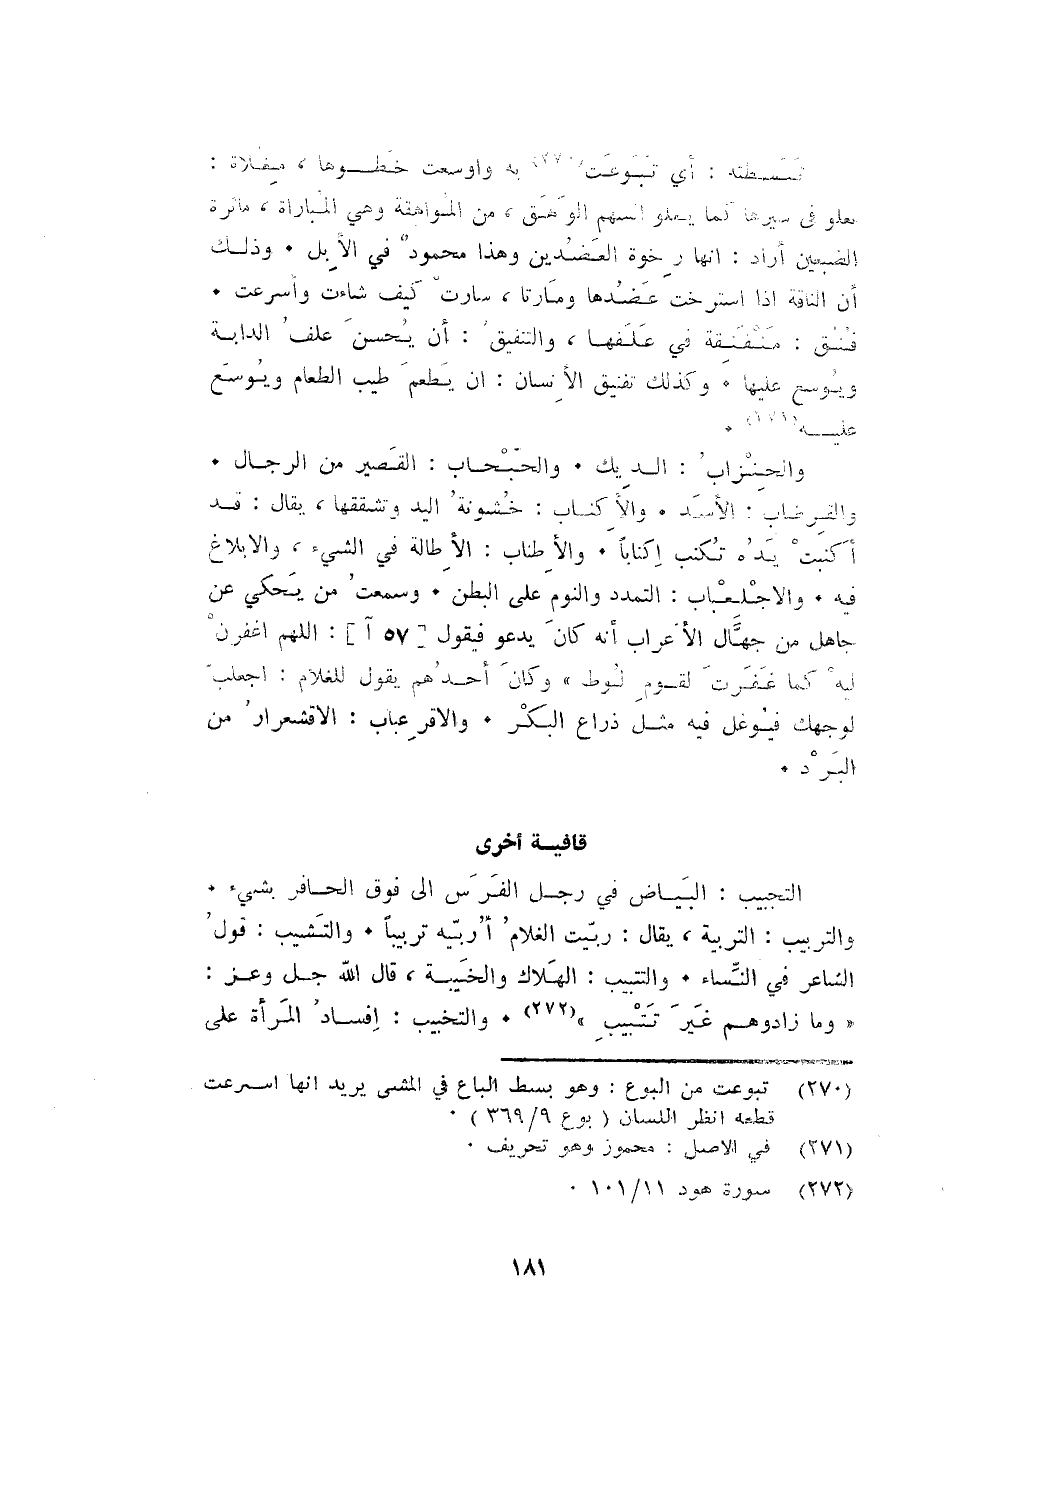 تَنَشّطته : أي تَبَوّعَت(٢٧٠) به واوسعت خَطـوها ، مِغلاة :
تغلو في سيرها كما يغلو السهم الوَهَق ، من المواهقة وهي المباراة ، مائرة
الضبعين أراد : انها رِخوة العَضُدين وهذا محمودٌ في الأبِل • وذلـك
أن الناقة اذا استرخت عَضُدها ومَارتا ، سارتْ كَيف شاءت وأسرعت •
فُنُق : مُتَفَنِقة في عَلَفهـا ، والتفيقُ : أن يُحسنَ علفُ الدابـة
ويُوسع عليها • وكذلك تفنيق الأنِسان : ان يَطعمَ طيب الطعام ويُوسَع
عليــه(٢٧١) •
والحِنْزابُ : الـديك • والحَبْحاب : القَصير من الرجـال •
والقِرضاب : الأسَد • والأكنـاب : خُشونةُ اليد وتشققها ، يقال : قـد
أكنبتْ يَدُه تُكنب إكناباً • والأطِناب : الأطِالة في الشيء ، والابلاغ
فيه • والاجْلِعْباب : التمدد والنوم على البطن • وسمعتُ من يَحكي عن
جاهل من جهَّال الأعَراب أنه كانَ يدعو فيقول [ ٥٧ آ ] : اللهم اغفرنْ
ليهْ كما غَفَرتَ لقـومِ لُوط » وكانَ أحـدُهم يقول للغلام : اجعلبَّ
لوجهك فيُوغل فيه مثـل ذراع البَكْر • والاقرِعباب : الاقشعرارُ من
البَرْد •
قافيـة أخرى
التجبيب : البَيـاض في رجـل الفَرَس الى فوق الحـافر بشيء •
والتربيب : التربية ، يقال : ربّيت الغلامُ أُربّيه تربيباً • والتَشبيب : قولُ
الشاعر في النِّساء • والتتبيب : الهَلاك والخَيبـة ، قال الله جـل وعـز :
« وما زادوهـم غَيرَ تَتْبيبٍ »(٢٧٢) • والتخبيب : إفسـادُ المَرأة على
(٢٧٠) تبوعت من البوع : وهو بسط الباع في المشي يريد انها اسـرعت
قطعه انظر اللسان ( بوع ٣٦٩/٩ ) •
(٢٧١) في الاصل : محموز وهو تحريف •
(٢٧٢) سورة هود ١٠١/١١ •
١٨١